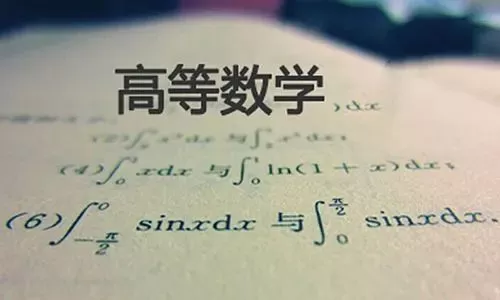 高等数学
)dx
(2) ∫ dx 与 ∫ dx;
(4) ∫₀¹ xdx 与 ∫₀¹ ln(1 + x)dx;
(6) ∫_{-π/2}^{0} sinxdx 与 ∫_{0}^{π/2} sinxdx.